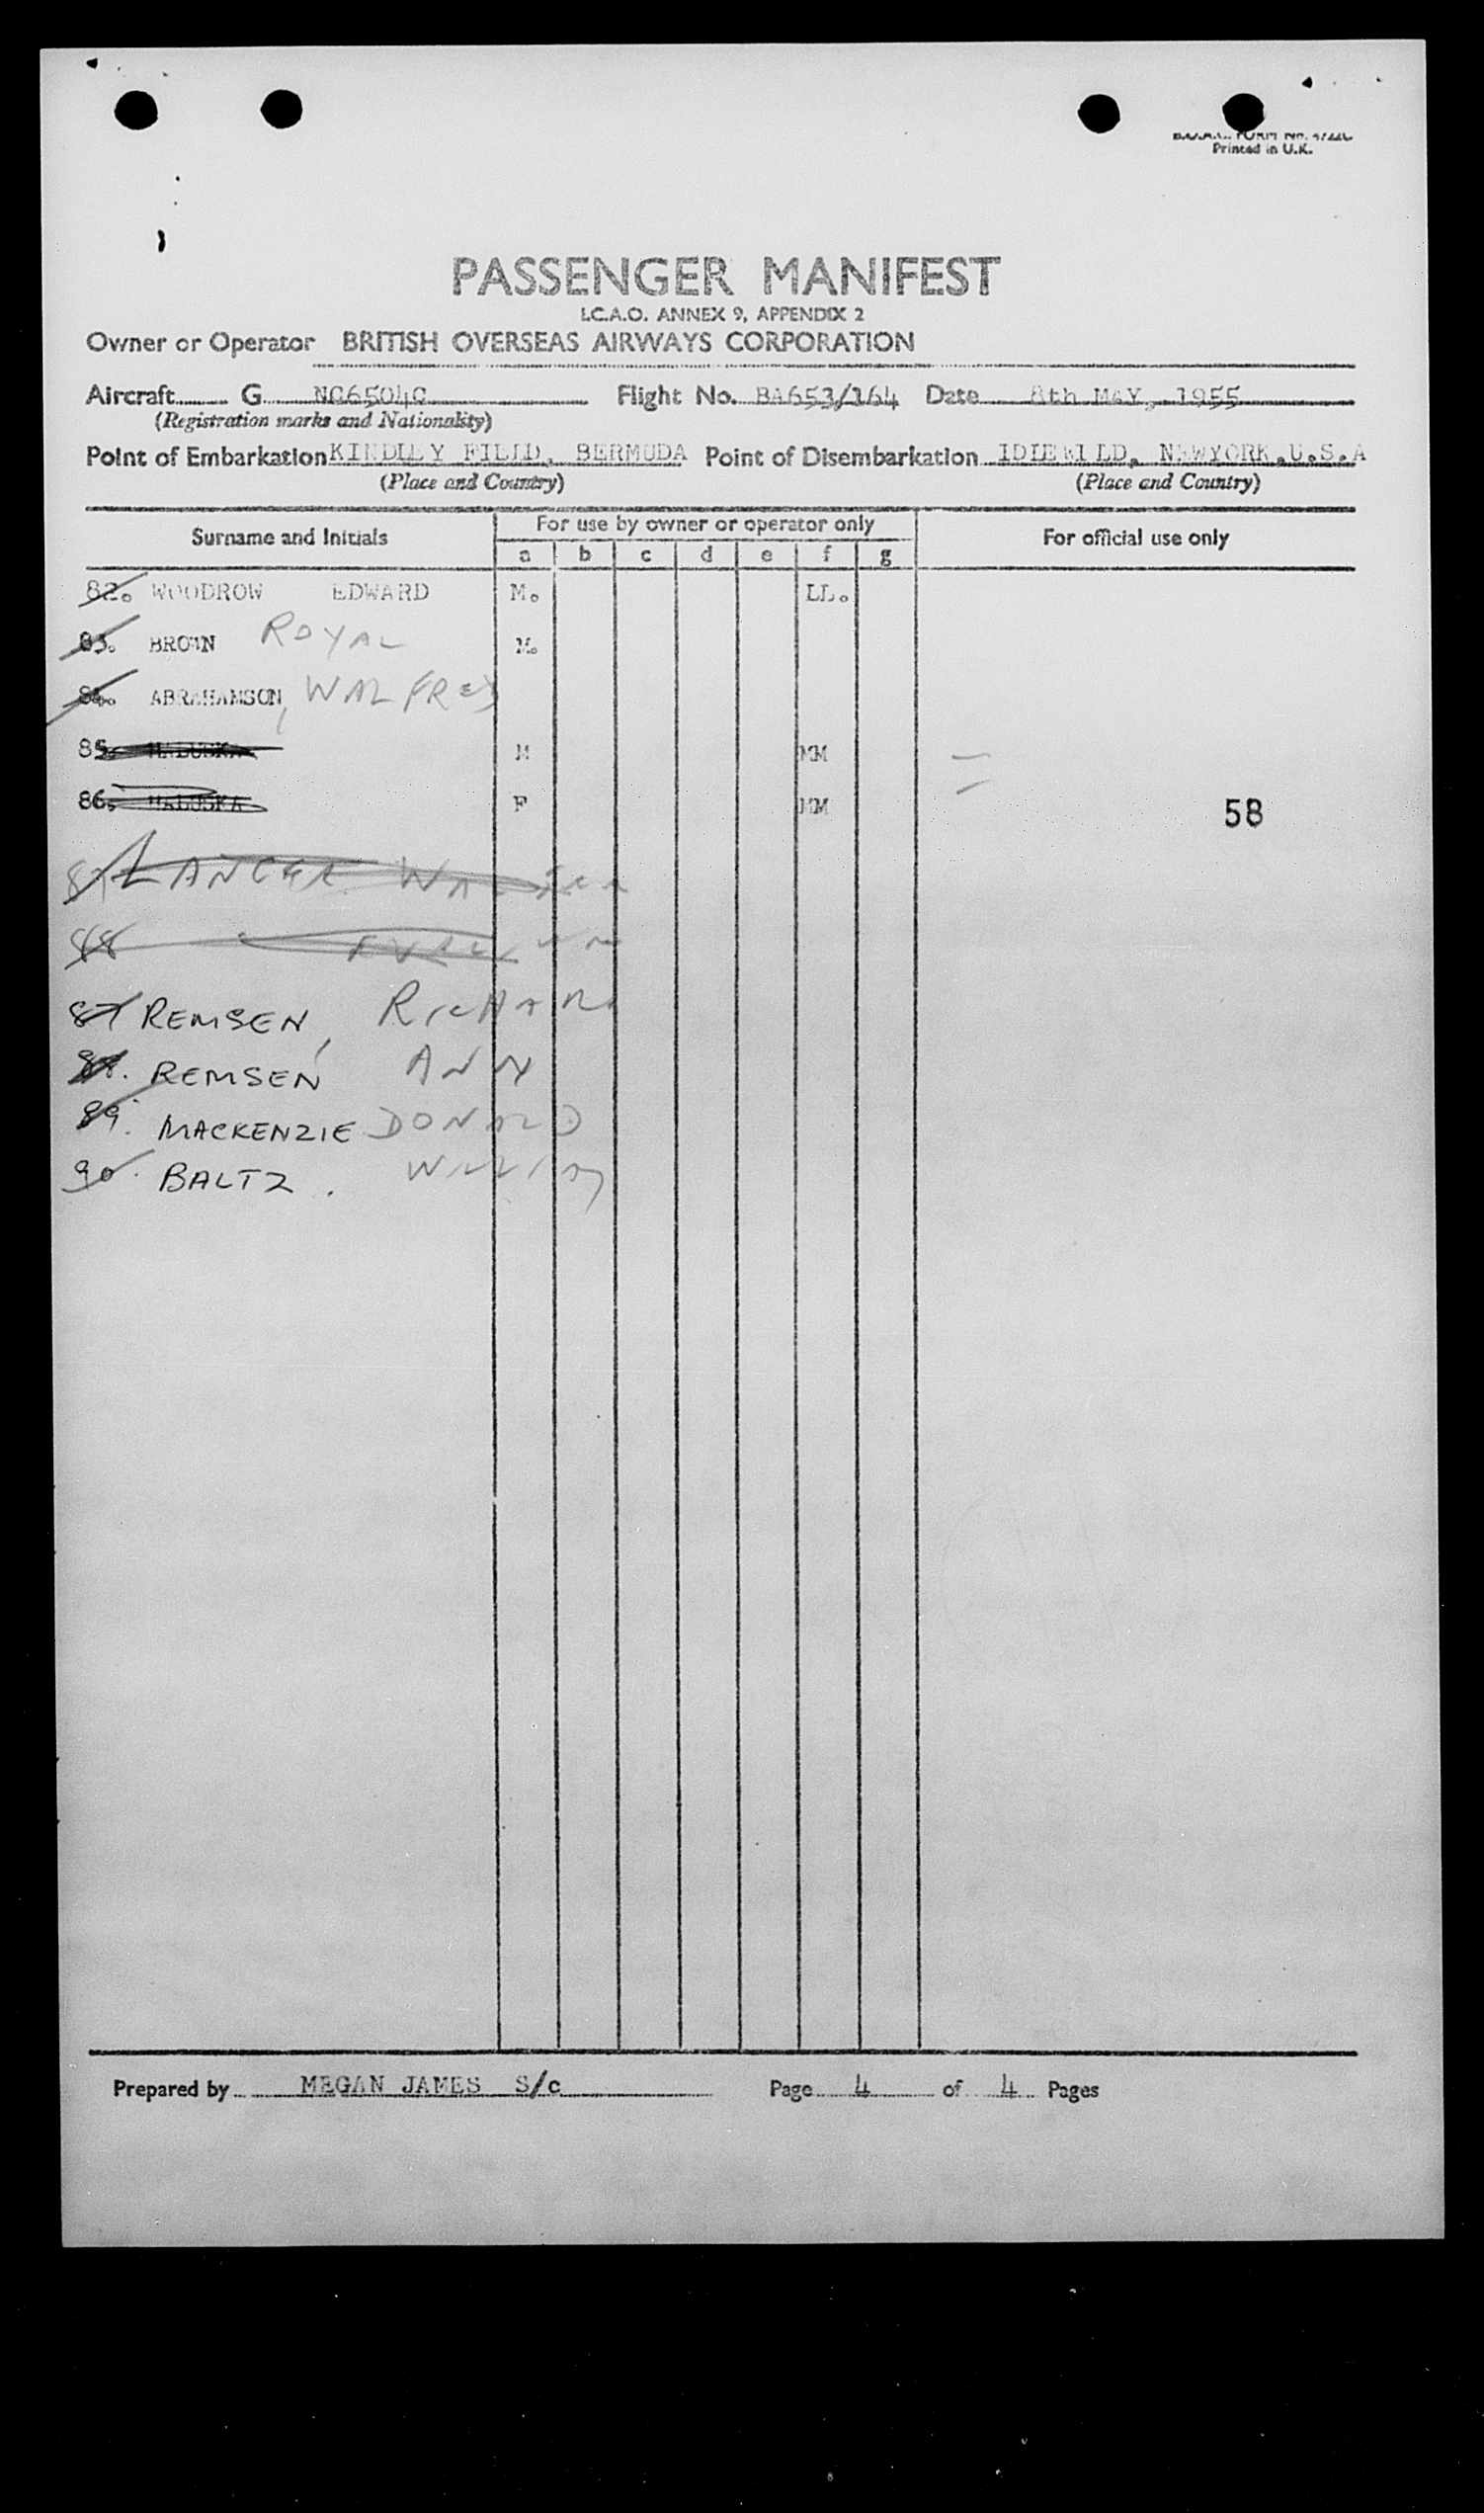 B.O.A.C. FORM No.
Printed in U.K.
PASSENGER MANIFEST
I.C.A.O. ANNEX 9, APPENDIX 2
Owner or Operator BRITISH OVERSEAS AIRWAYS CORPORATION
Aircraft G NC6504C Flight No. BA653/164 Date 8th MAY, 1955
(Registration marks and Nationality)
Point of Embarkation KINDLEY FIELD, BERMUDA Point of Disembarkation IDLEWILD, NEWYORK,U.S.A
(Place and Country) (Place and Country)
Surname and Initials For use by owner or operator only For official use only
a b c d e f g
82. WOODROW EDWARD M. LL.
83. BROWN ROYAL M.
84. ABRAHAMSON, WALFRED
85. HALUSKA M MM
86. HALUSKA F MM
58
87 LANCER WALTER
88
87 REMSEN, RICHARD
88. REMSEN ANN
89. MACKENZIE DONALD
90. BALTZ. WILLIAM
Prepared by MEGAN JAMES S/c Page 4 of 4 Pages